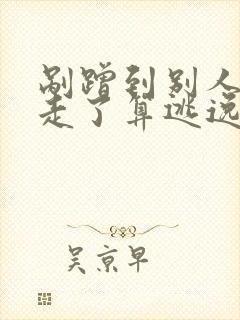 剐蹭到别人
走了算逃逸
吴京早